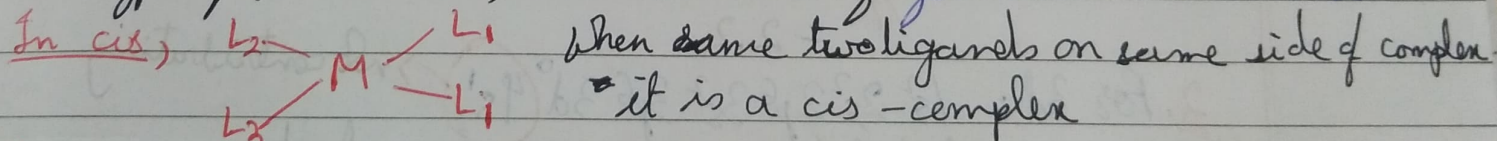 In cis, L2 L1 When same two ligands on same side of complex
M
L2 L1 it is a cis-complex